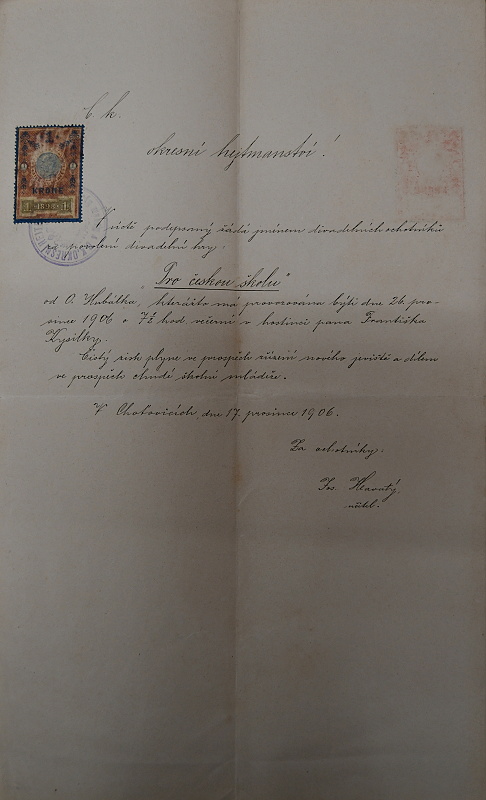 C. k.
okresní hejtmanství!
1
KRONE
1 1898 1
V úctě podepsaný žádá jménem divadelních ochotníků
za povolení divadelní hry:
"Pro českou školu"
od O. Kubálka, kterážto má provozována býti dne 26. pro-
since 1906 o 7½ hod. večerní v hostinci pana Františka
Kysilky.
Čistý zisk plyne ve prospěch zřízení nového jeviště a dílem
ve prospěch chudé školní mládeže.
V Chotovicích, dne 17. prosince 1906.
Za ochotníky:
Jos.
učitel.